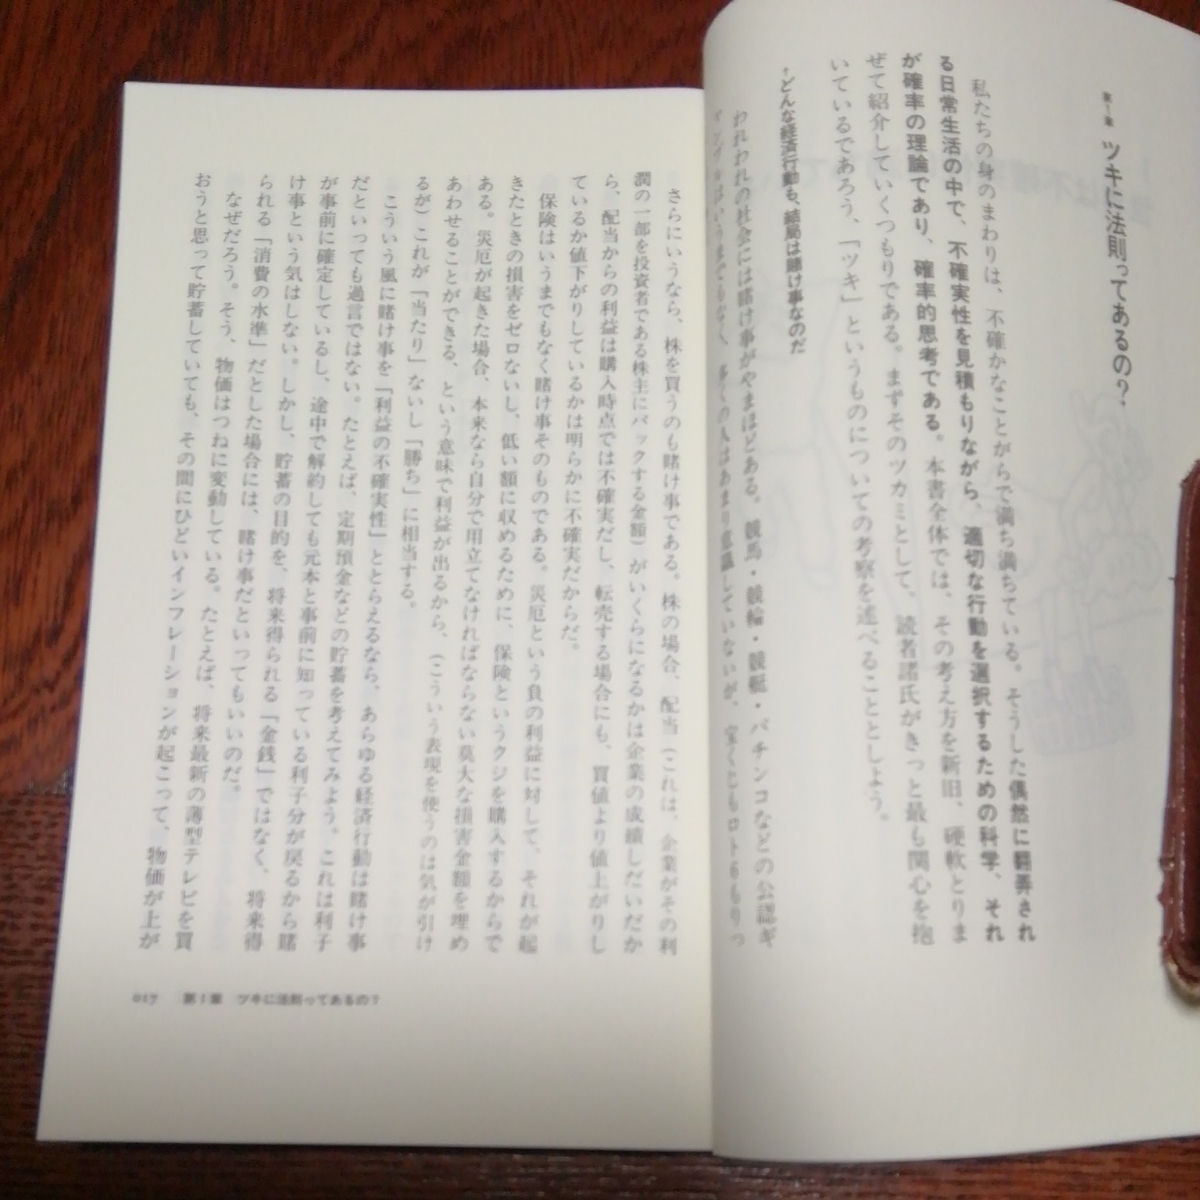 第1章 ツキに法則ってあるの?
私たちの身のまわりは、不確かなことがらで満ち満ちている。そうした偶然に翻弄され
る日常生活の中で、不確実性を見積もりながら、適切な行動を選択するための科学、それ
が確率の理論であり、確率的思考である。本書全体では、その考え方を新旧、硬軟とりま
ぜて紹介していくつもりである。まずそのツカミとして、読者諸氏がきっと最も関心を抱
いているであろう、「ツキ」というものについての考察を述べることとしよう。
どんな経済行動も、結局は賭け事なのだ
われわれの社会には賭け事がやまほどある。競馬・競輪・競艇・パチンコなどの公認ギ
ャンブルはいうまでもなく、多くの人はあまり意識していないが、宝くじもロト6もりっ
さらにいうなら、株を買うのも賭け事である。株の場合、配当(これは、企業がその利
潤の一部を投資者である株主にバックする金額)がいくらになるかは企業の成績しだいだか
ら、配当からの利益は購入時点では不確実だし、転売する場合にも、買値より値上がりし
ているか値下がりしているかは明らかに不確実だからだ。
保険はいうまでもなく賭け事そのものである。災厄という負の利益に対して、それが起
きたときの損害をゼロないし、低い額に収めるために、保険というクジを購入するからで
ある。災厄が起きた場合、本来なら自分で用立てなければならない莫大な損害金額を埋め
あわせることができる、という意味で利益が出るから、(こういう表現を使うのは気が引け
るが)これが「当たり」ないし「勝ち」に相当する。
こういう風に賭け事を「利益の不確実性」ととらえるなら、あらゆる経済行動は賭け事
だといっても過言ではない。たとえば、定期預金などの貯蓄を考えてみよう。これは利子
が事前に確定しているし、途中で解約しても元本と事前に知っている利子分が戻るから賭
け事という気はしない。しかし、貯蓄の目的を、将来得られる「金銭」ではなく、将来得
られる「消費の水準」だとした場合には、賭け事だといってもいいのだ。
なぜだろう。そう、物価はつねに変動している。たとえば、将来最新の薄型テレビを買
おうと思って貯蓄していても、その間にひどいインフレーションが起こって、物価が上が
017 第1章 ツキに法則ってあるの?